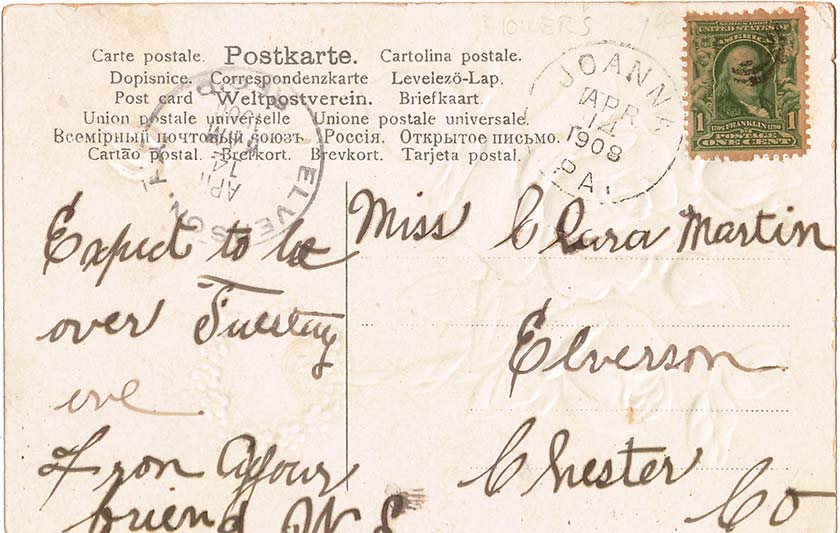 Carte postale. Postkarte. Cartolina postale.
Dopisnice. Correspondenzkarte Levelezö-Lap.
Post card Weltpostverein. Briefkaart.
Union postale universelle Unione postale universale.
Всемірный почтовый союзъ Россія. Открытое письмо.
Cartão postal. Brefkort. Brevkort. Tarjeta postal.
JOANNA
APR
14
1908
PA.
SERIES 1902
UNITED STATES OF
AMERICA
1706 FRANKLIN 1790
1 1
POSTAGE
ONE CENT
ELVERSON
APR
14
Expect to be
over Tuesday
eve
From Your
friend
Miss Clara Martin
Elverson
Chester
Co